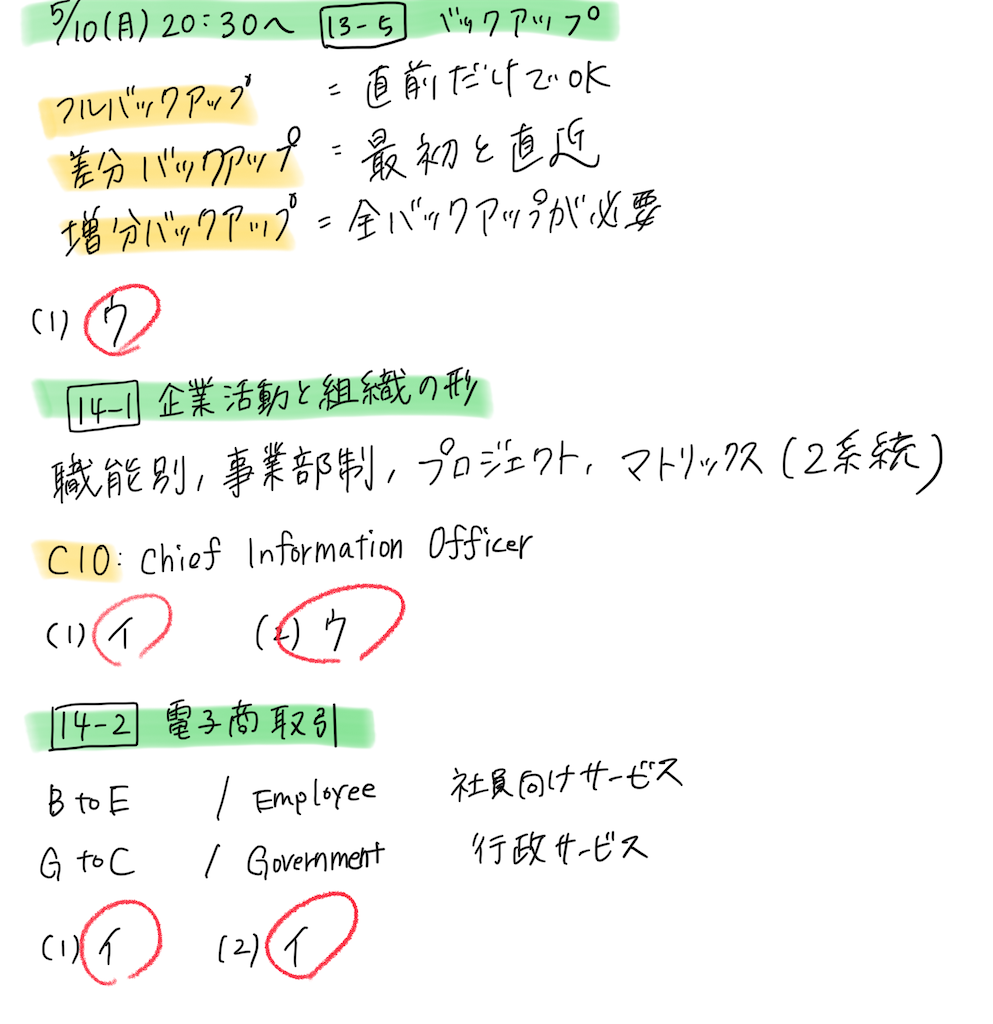 5/10(月) 20:30〜 13-5 バックアップ
フルバックアップ = 直前だけでOK
差分バックアップ = 最初と直近
増分バックアップ = 全バックアップが必要
(1) ウ
14-1 企業活動と組織の形
職能別, 事業部制, プロジェクト, マトリックス (2系統)
CIO: Chief Information Officer
(1) イ (2) ウ
14-2 電子商取引
B to E / Employee 社員向けサービス
G to C / Government 行政サービス
(1) イ (2) イ